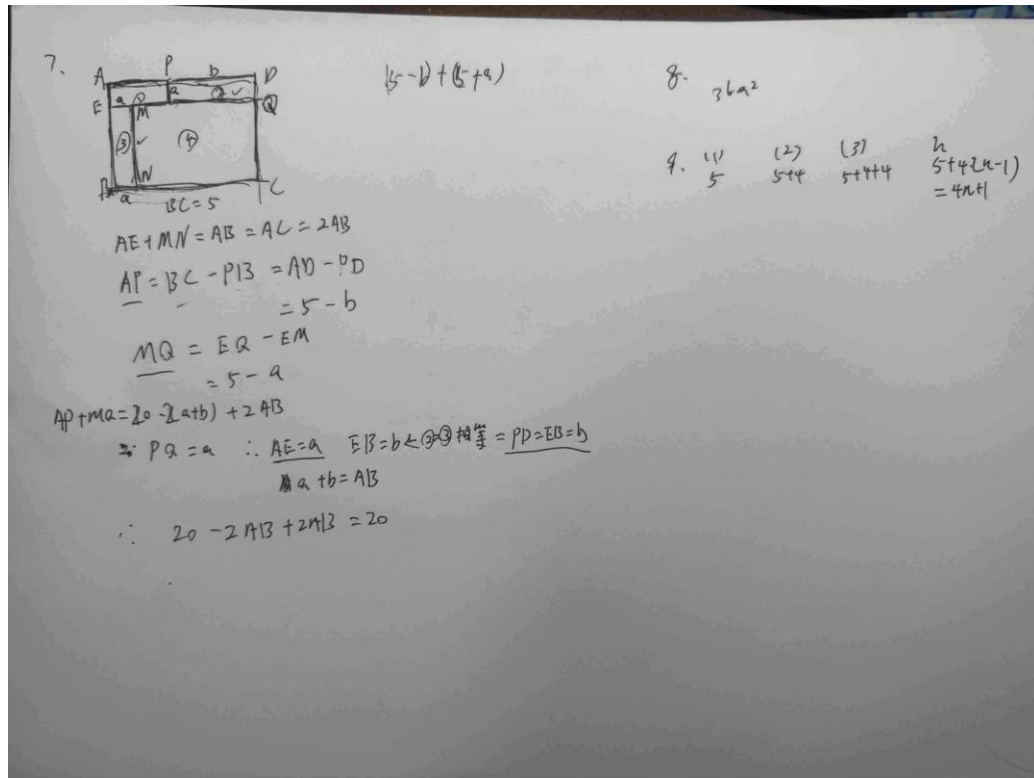 7.
A P b D
E a ① a ② Q
M
③ ④
B a N C
BC=5
AE+MN=AB=AC=2AB
AP=BC-PB=AD-PD
=5-b
MQ=EQ-EM
=5-a
AP+MQ=20-2(a+b)+2AB
PQ=a ∴AE=a EB=b<②③相等=PD=EB=b
a+b=AB
∴ 20-2AB+2AB=20
(5-b)+(5+a)
8.
36a²
9. (1) (2) (3) n
5 5+4 5+4+4 5+4(n-1)
=4n+1